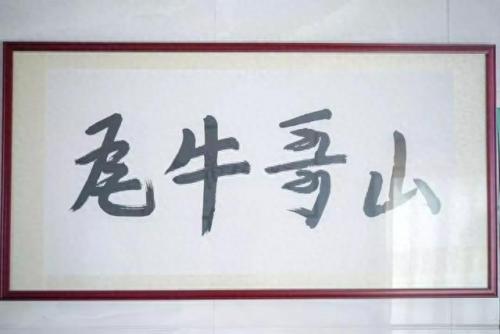 山哥牛尾